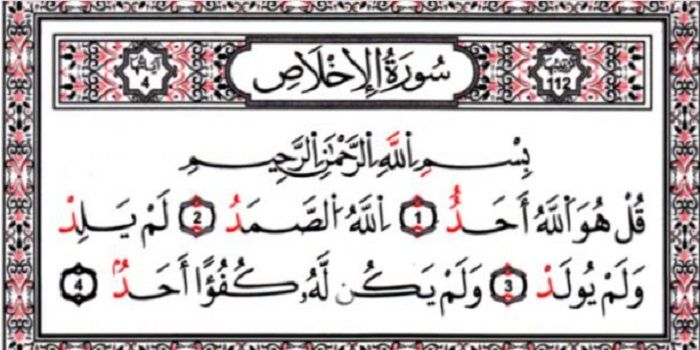 ترتيبها
112
سُورَةُ الإِخْلَاصِ
آياتها
4
بِسْمِ اِ۬للَّهِ اِ۬لرَّحْمَٰنِ اِ۬لرَّحِيمِ
قُلْ هُوَ اَ۬للَّهُ أَحَدٌ 1 اَ۬للَّهُ اُ۬لصَّمَدُ 2 لَمْ يَلِدْ
وَلَمْ يُولَدْ 3 وَلَمْ يَكُن لَّهُۥ كُفُؤًا أَحَدُۢ 4